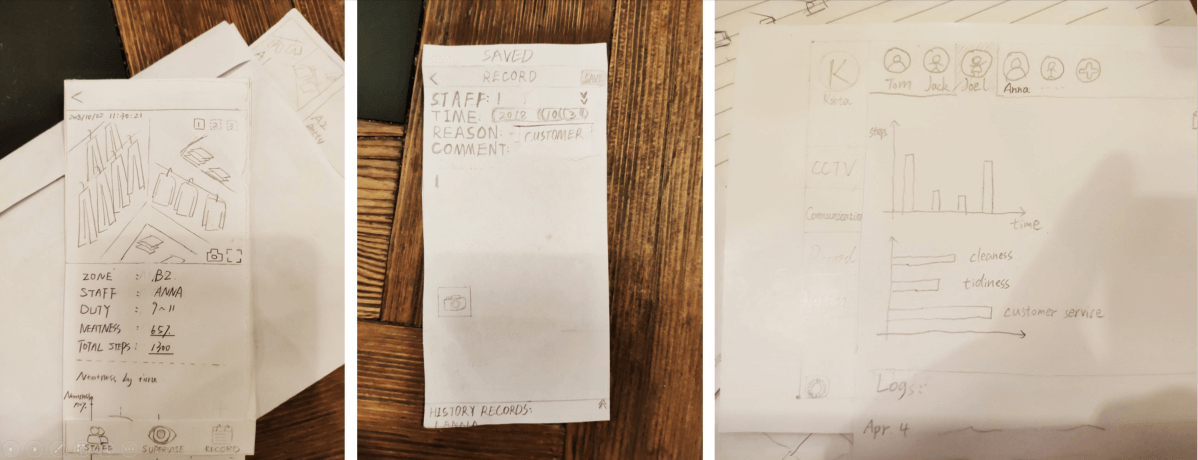 <
1 2 3
ZONE : B2
STAFF : ANNA
DUTY : 7~11
NEATNESS : 65%
TOTAL STEPS : 1300
Neatness by time
STAFF SUPERVISE RECORD
SAVED
< RECORD SAVE
STAFF: 1
TIME: 2018
REASON: CUSTOMER
COMMENT:
HISTORY RECORDS:
K
Tom Jack Joel Anna ....
CCTV
Communication
Record
steps
time
cleaness
tidiness
customer service
Logs:
Apr. 4